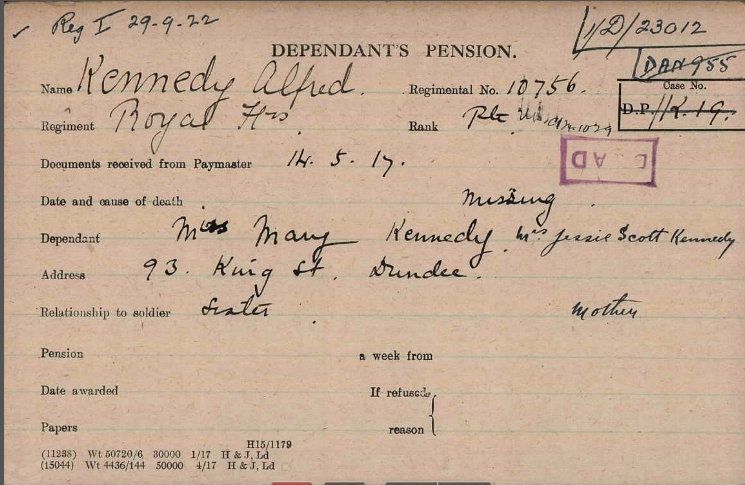 ✓ Reg I 29-9-22
1/D/23012
DAN955
DEPENDANT'S PENSION.
Name Kennedy Alfred. Regimental No. 10756.
Case No.
D.P. //K.19.
Regiment Royal Hrs Rank Pte
DEAD
Documents received from Paymaster 14. 5. 17.
Date and cause of death Missing.
Dependant Miss Mary Kennedy. Mrs Jessie Scott Kennedy
Address 93. King St. Dundee.
Relationship to soldier Sister. Mother
Pension a week from
Date awarded If refused,
Papers reason
H15/1179
(11238) Wt 50720/6 30000 1/17 H & J, Ld
(15044) Wt 4436/144 50000 4/17 H & J, Ld